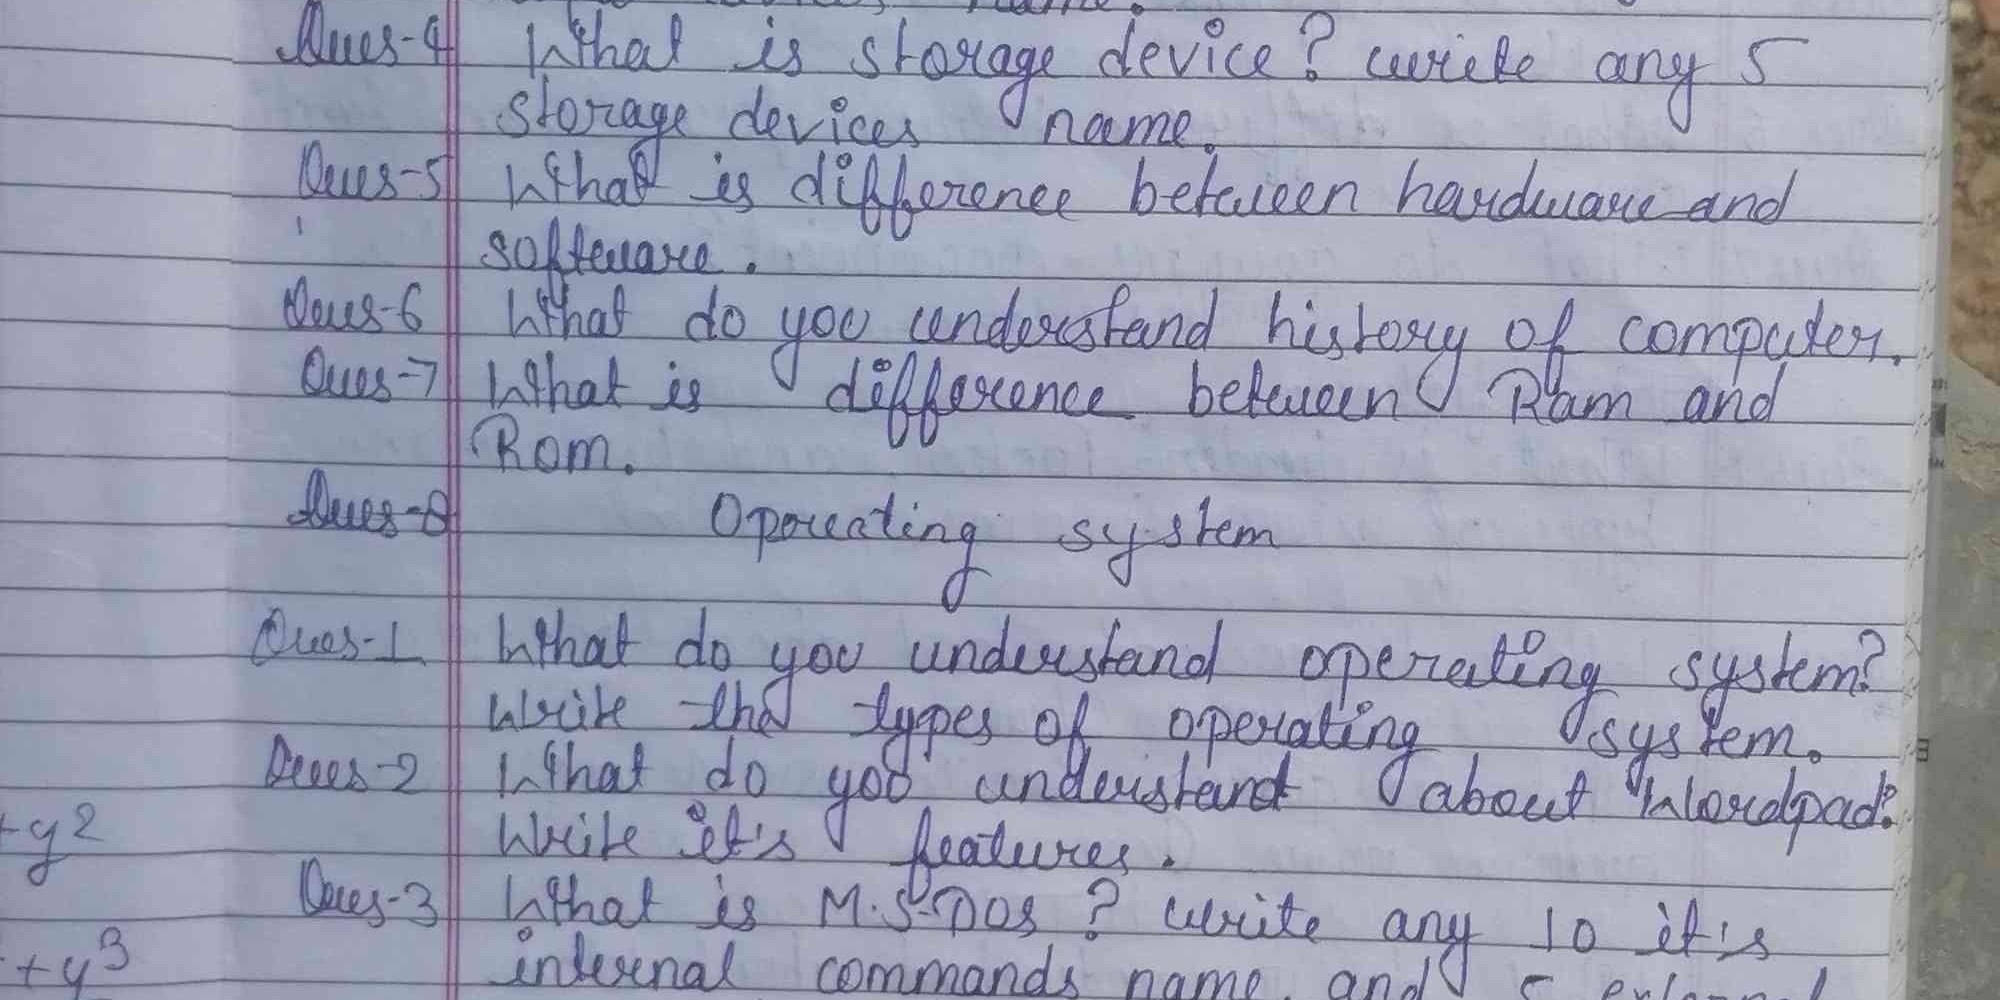 name.
Ques-4 What is storage device? write any 5
storage devices name.
Ques-5 What is difference between hardware and
software.
Ques-6 What do you understand history of computer.
Ques-7 What is difference between Ram and
Rom.
Ques-8 Operating system
Ques-1 What do you understand operating system?
Write the types of operating system.
Ques-2 What do you understand about Wordpad?
Write it's features.
-y2
Ques-3 What is M.S-DOS ? write any 10 it's
+y3
internal commands name and 5 external